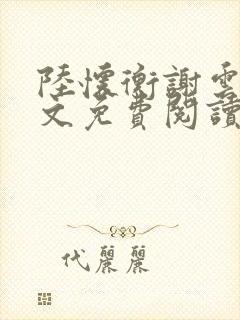 陸懷衡謝雲
文免費閱讀
代麗麗